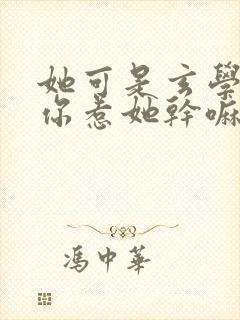 她可是玄學
你惹她幹嘛
馮中華